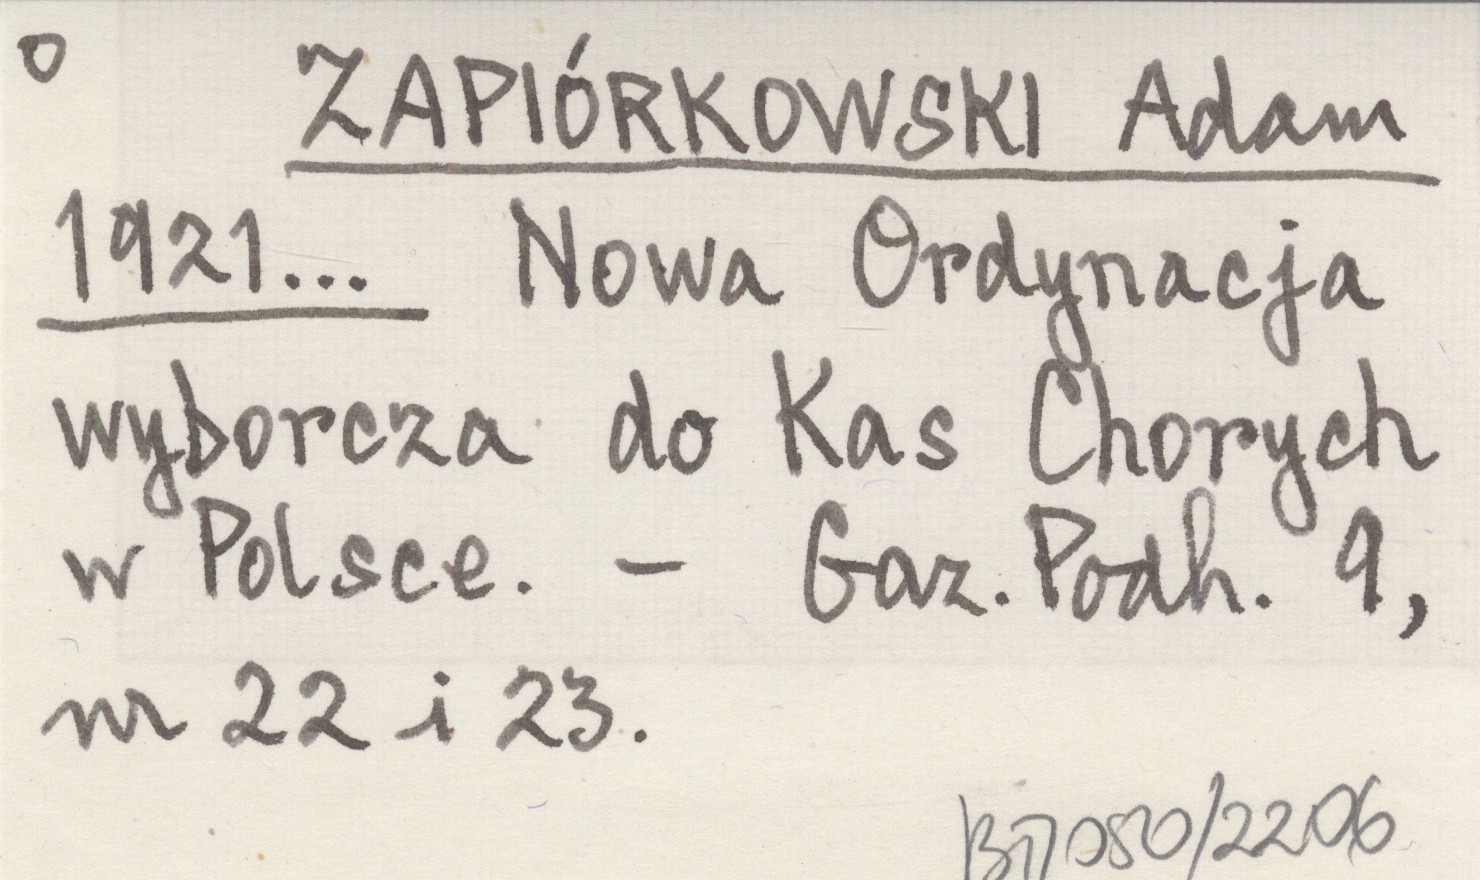 o ZAPIÓRKOWSKI Adam
1921... Nowa Ordynacja
wyborcza do Kas Chorych
w Polsce. – Gaz. Podh. 9,
nr 22 i 23.
/2206